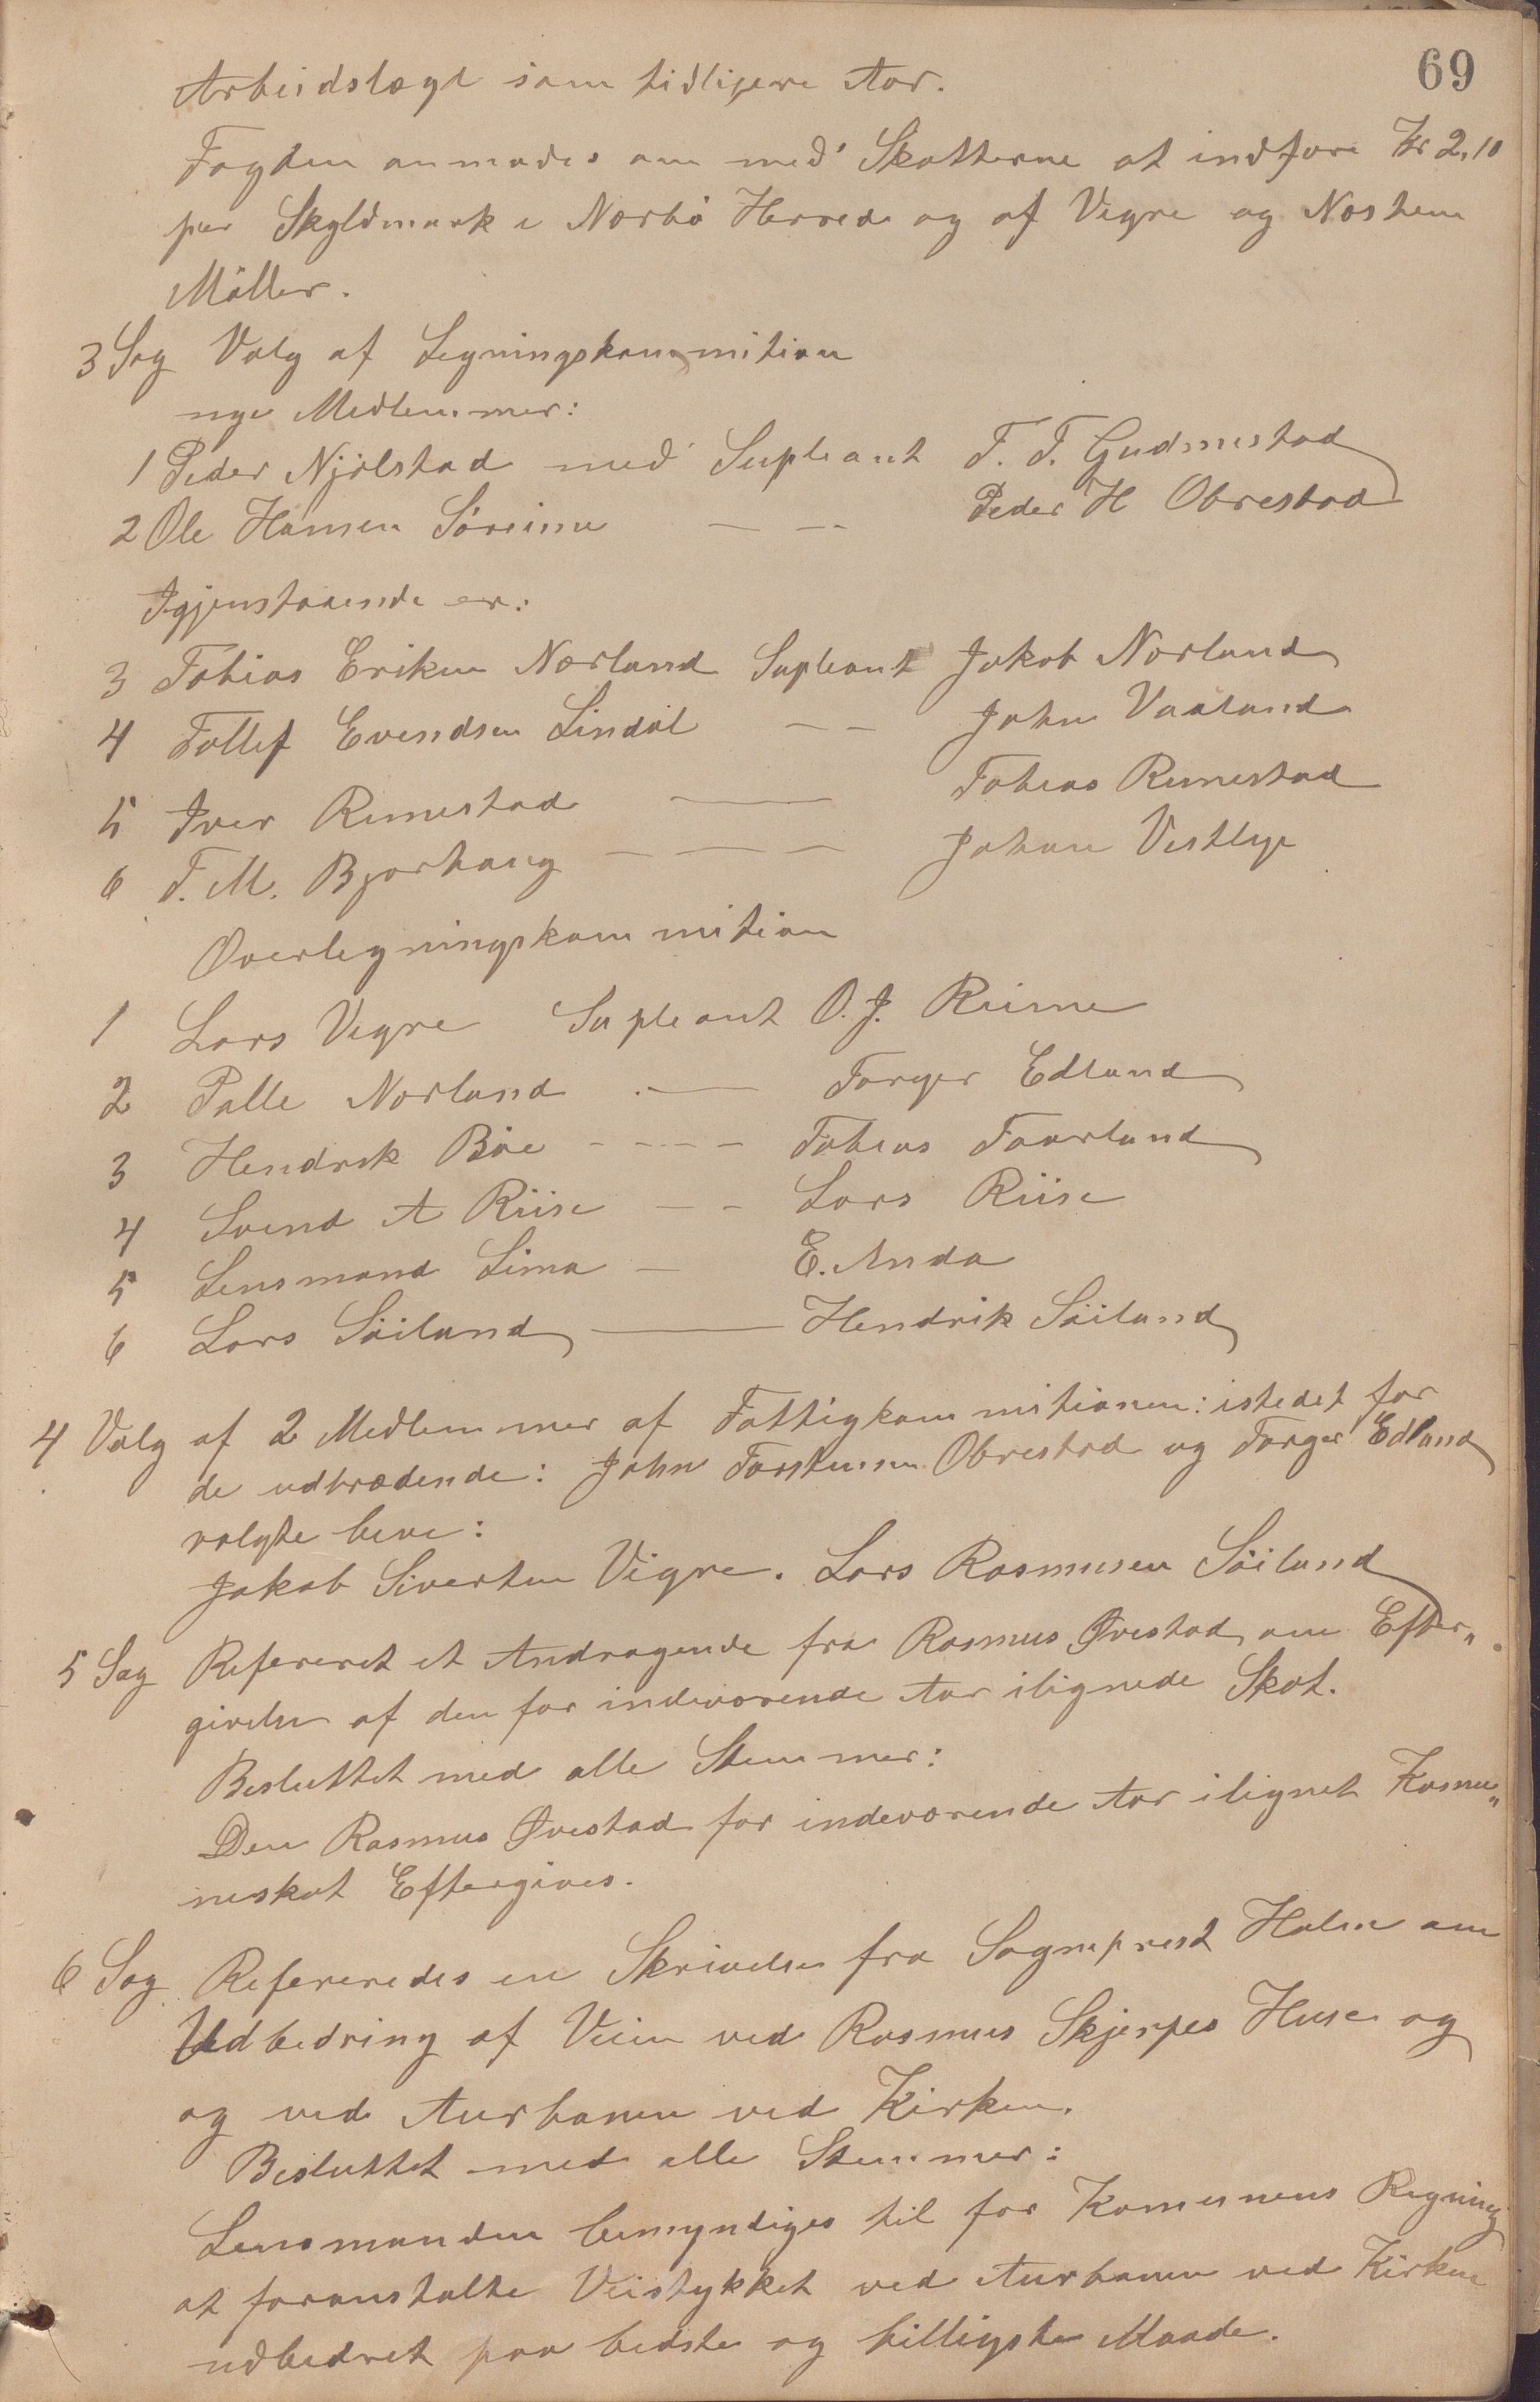 69
Arbeidslægd som tidligere Aar.
Fogden anmodes om med Skatterne at indføre Kr 2,10
per Skyldmark i Nærbö Herred og af Vigre og Næshem
Möller.
3 Sag Valg af Legningskommition
nye Medlemmer:
1 Peder Njölstad med Supleant T. T. Gudmestad
2 Ole Hansen Söreime — — Peder H Obrestad
Igjenstaaende er:
3 Tobias Eriksen Nærland Supleant Jakob Nærland
4 Tollef Evendsen Lindal — — John Vaaland
5 Iver Rimestad — Tobias Rimestad
6 T. M. Bjorhaug — — — Johan Vestlye
Overlegningskommition
1 Lars Vigre Supleant O. J. Reime
2 Palle Nærland — Torger Edland
3 Hendrik Böe - - - - Tobias Taarland
4 Svend A Riise — - Lars Riise
5 Lensmand Lima — E. Anda
6 Lars Söiland — Hendrik Söiland
4 Valg af 2 Medlemmer af Fattigkommitionen: istedet for
de udtrædende: John Torstensen Obrestad og Torger Edland
valgte bleve:
Jakob Sivertsen Vigre. Lars Rasmusen Söiland
5 Sag Refereret et Andragende fra Rasmus Øvestad om Efter„
givelse af den for indeværende Aar ilignede Skat.
Besluttet med alle Stemmer:
Den Rasmus Øvestad for indeværende Aar ilignet Komu„
neskat Eftergives.
6 Sag Refereredes en Skrivelse fra Sogneprest Holm om
Udbedring af Veien ved Rasmus Skjerpes Huse og
og ved Aurbanen ved Kirken.
Besluttet med alle Stemmer:
Lensmanden bemyndiges til for Komunens Regning
at foranstalte Veistykket ved Aurbanen ved Kirken
udbedret paa bedste og billigste Maade.